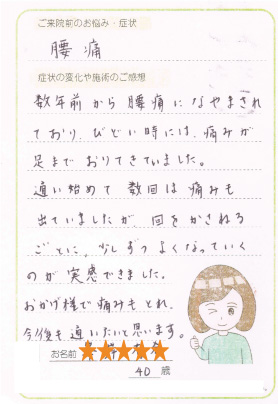 ご来院前のお悩み・症状
腰痛
症状の変化や施術のご感想
数年前から腰痛になやまされ
ており、ひどい時には、痛みが
足までおりてきていました。
通い始めて数回は痛みも
出ていましたが、回をかさねる
ごとに、少しずつよくなっていく
のが実感できました。
おかげ様で痛みもとれ、
今後も通いたいと思います。
お名前
40歳